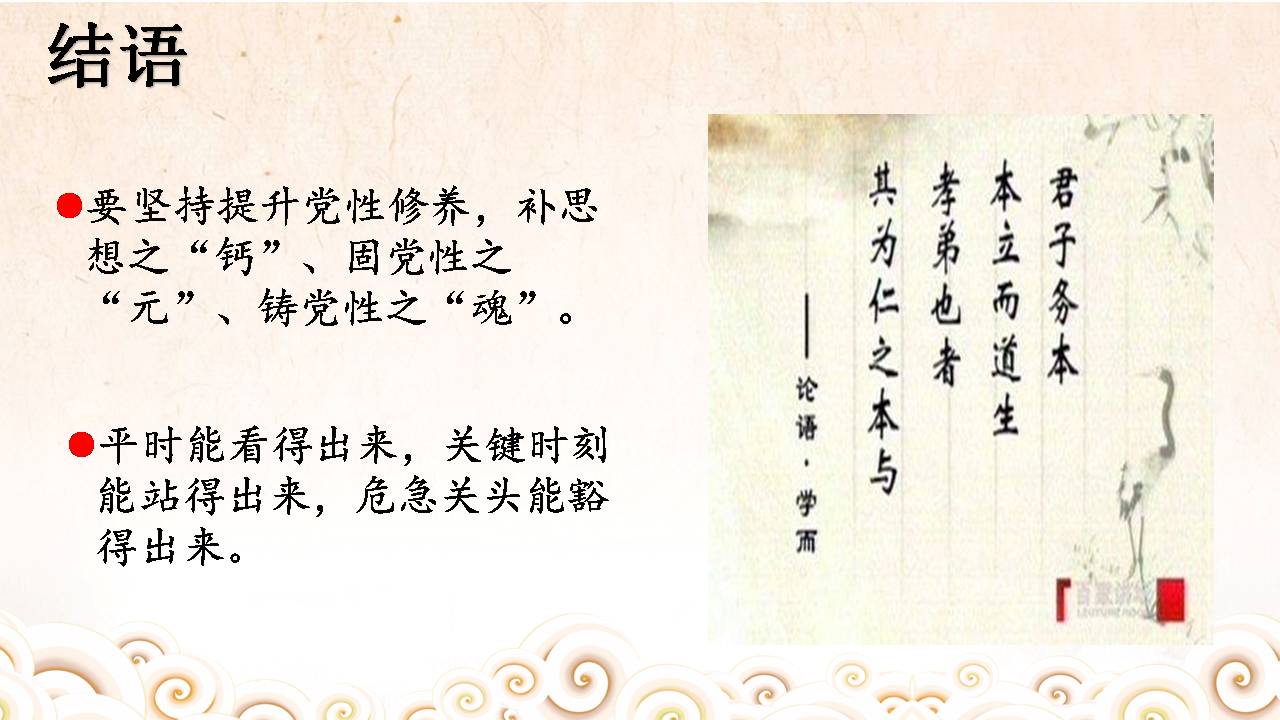 结语
●要坚持提升党性修养，补思
想之“钙”、固党性之
“元”、铸党性之“魂”。
●平时能看得出来，关键时刻
能站得出来，危急关头能豁
得出来。
君子务本
本立而道生
孝弟也者
其为仁之本与
——论语·学而
百家讲坛